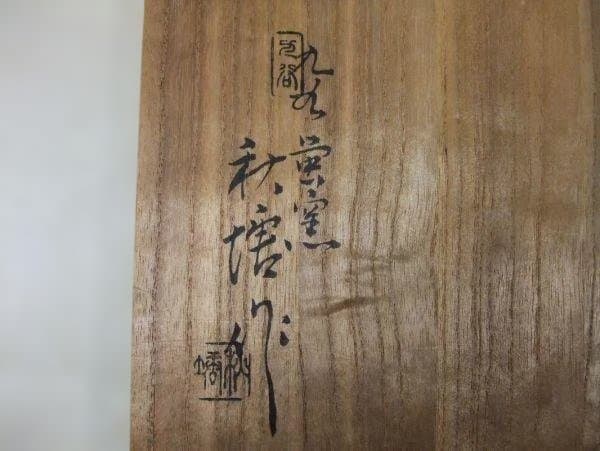 九谷
九谷
窯
秋塘作
秋塘